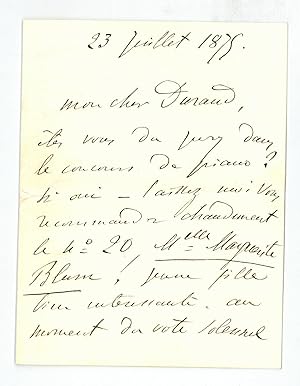 23 Juillet 1875.
mon cher Durand,
êtes vous du jury dans
le concours de piano?
si oui – laissez moi vous
recommander chaudement
le No 20, Mlle Marguerite
Blum, jeune fille
bien interessante. au
moment du vote solennel